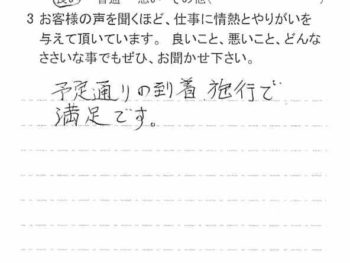 3 お客様の声を聞くほど、仕事に情熱とやりがいを
与えて頂いています。 良いこと、悪いこと、どんな
ささいな事でもぜひ、お聞かせ下さい。
予定通りの到着、施行で
満足です。